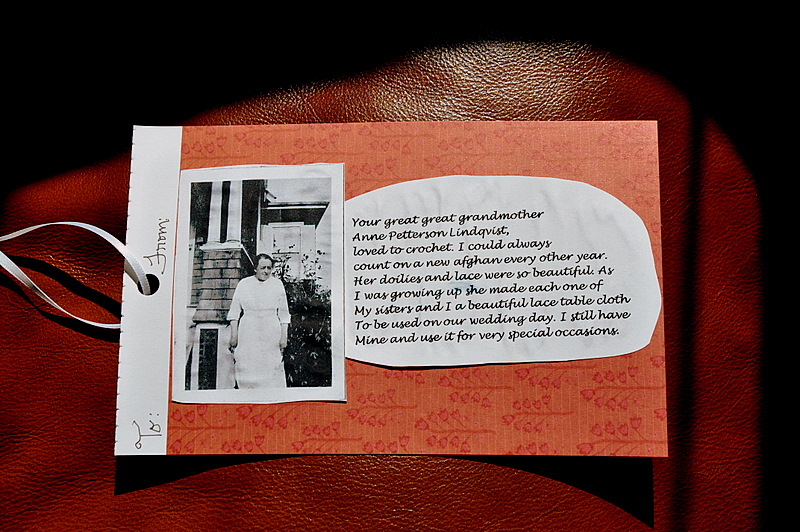 From:
To:
Your great great grandmother
Anne Petterson Lindqvist,
loved to crochet. I could always
count on a new afghan every other year.
Her doilies and lace were so beautiful. As
I was growing up she made each one of
My sisters and I a beautiful lace table cloth
To be used on our wedding day. I still have
Mine and use it for very special occasions.